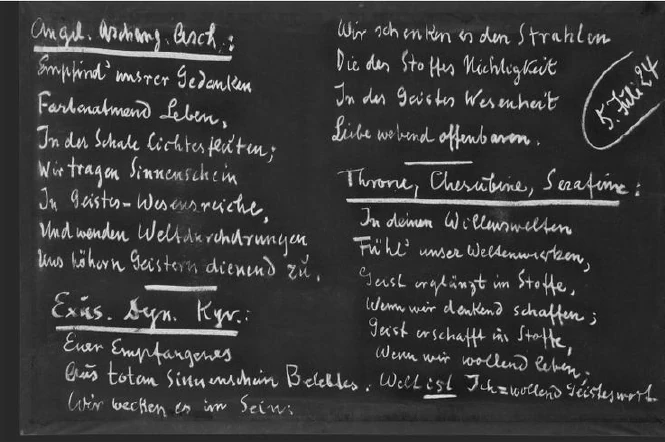 Angel. Archang. Arch.:
Empfind' unsrer Gedanken
Farbenatmend Leben,
In der Schale Lichtesfluten;
Wir tragen Sinnenschein
In Geistes-Wesensreiche,
Und wenden Weltdurchdrungen
Uns höhern Geistern dienend zu.
Exus. Dyn. Kyr.:
Euer Empfangenes
Aus totem Sinnenschein Belebtes.
Wir wecken es im Sein:
Wir schenken es den Strahlen
Die des Stoffes Nichtigkeit
In des Geistes Wesenheit
Liebe webend offenbaren.
5. Juli 24
Throne, Cherubine, Serafine:
In deinen Willenswelten
Fühl' unser Weltenwirken,
Geist erglänzt im Stoffe,
Wenn wir denkend schaffen;
Geist erschafft im Stoffe,
Wenn wir wollend leben:
Welt ist Ich=wollend Geisteswort